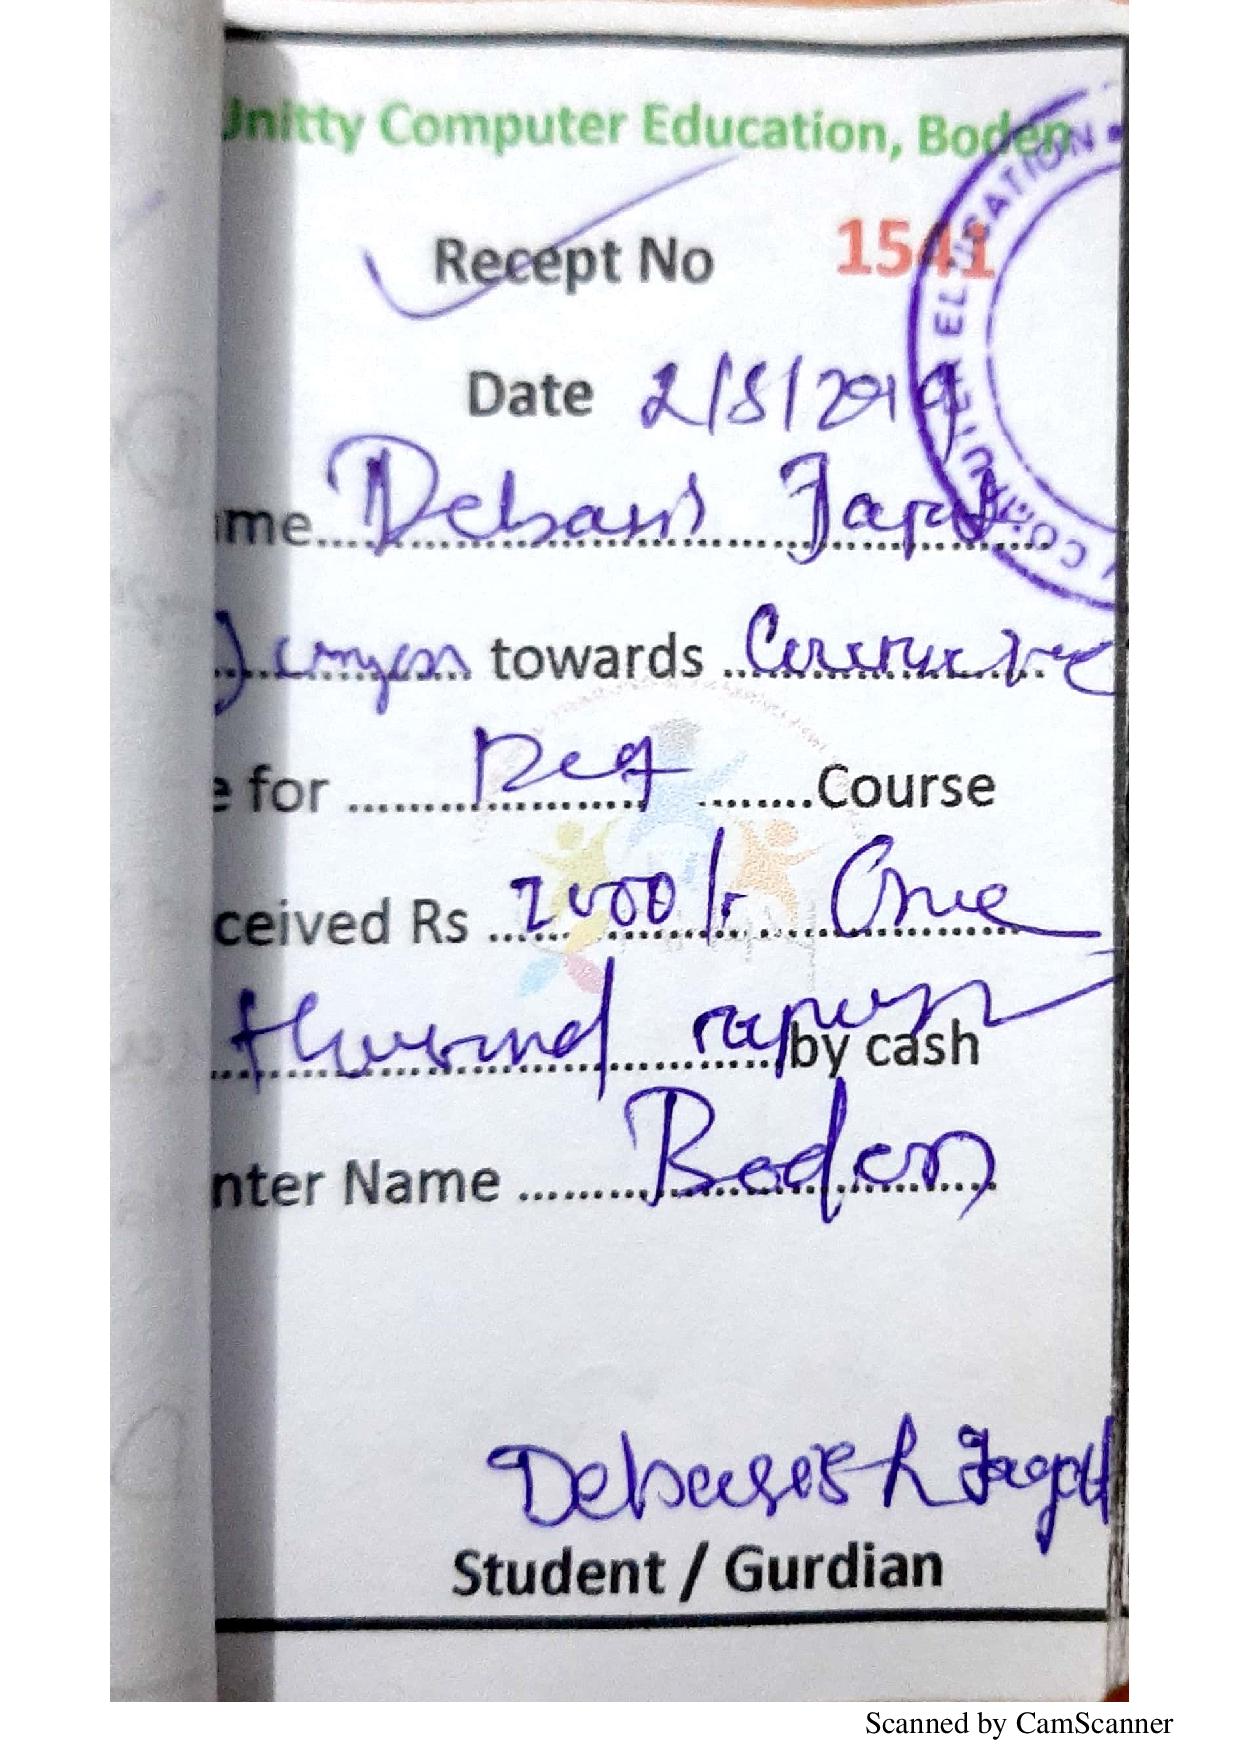 Unitty Computer Education, Boden
Recept No 1541
Date 2/8/2019
ame Debasis Jagat
towards
e for Course
ceived Rs 2000/- One
thousand rupees by cash
nter Name Boden
Debasish Jagat
Student / Gurdian
Scanned by CamScanner